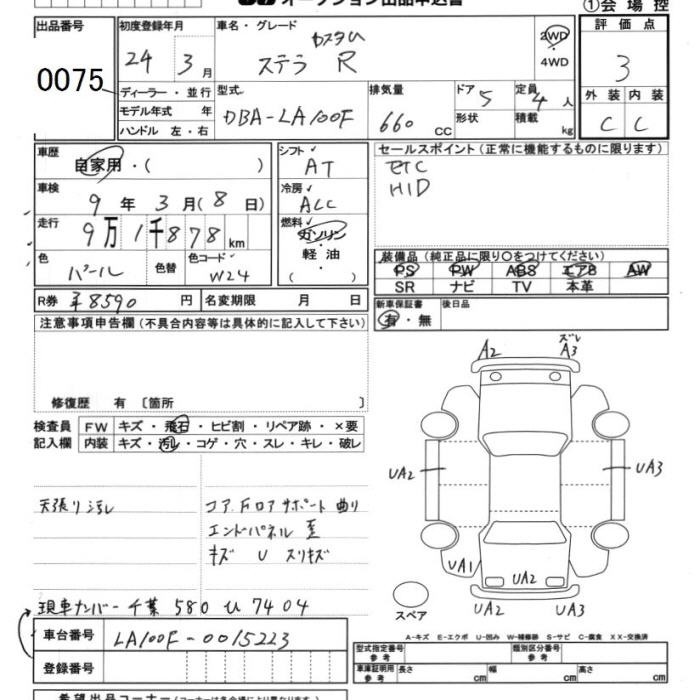 オークション出品申込書
①会場控
出品番号
0075
初度登録年月
24年3月
ディーラー・並行
モデル年式 年
ハンドル 左・右
車名・グレード
カスタム
ステラ R
2WD
・
4WD
型式
DBA-LA100F
排気量
660 CC
ドア 5
形状
定員 4人
積載 kg
評価点
3
外装 内装
C C
車歴
自家用・( )
車検
9年3月(8日)
走行
9万1千878km
色
パール
色替
色コード
W24
シフト
AT
冷房
AAC
燃料
ガソリン
・
軽油
( )
R券 ¥8590円
名変期限 月 日
セールスポイント(正常に機能するものに限ります)
ETC
HID
装備品(純正品に限り○をつけてください)
PS PW ABS エアB AW
SR ナビ TV 本革
新車保証書
有・無
後日品
注意事項申告欄(不具合内容等は具体的に記入して下さい)
修復歴 有 〔箇所 〕
検査員
記入欄
FW キズ・飛石・ヒビ割・リペア跡・×要
内装 キズ・汚レ・コゲ・穴・スレ・キレ・破レ
天張り汚レ
コア,Fロアサポート曲り
エンドパネル 歪
キズ U スリキズ
現車ナンバー千葉 580 ひ 7404
車台番号 LA100F-0015223
登録番号
A2
ズレ
A3
UA2
UA3
UA1
UA2
UA2
UA3
スペア
A-キズ E-エクボ U-凹み W-補修跡 S-サビ C-腐食 XX-交換済
型式指定番号
参考
類別区分番号
参考
車庫証明用
参考
長さ cm
幅 cm
高さ cm
希望出品コーナー(コーナーは各会場により異なります。)